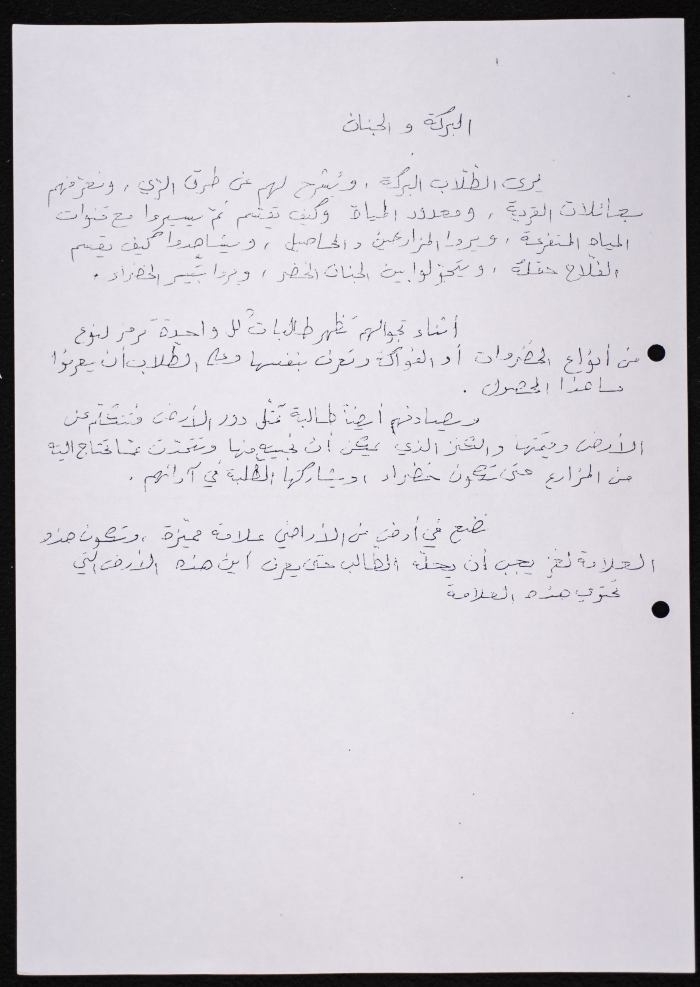 البركة و الجنان
يرى الطلاب البركة ، ونشرح لهم عن طرق الري ، ونعرفهم
بعائلات القرية ، ومعدود المياة وكيف تقسم ثم يسيروا مع قنوات
المياه المتفرعة ، ويروا المزارعين والمحاصيل ، ويشاهدوا كيف يقسم
الفلاح حقلة ، ويتجولوا بين الجنان الخضر ، ويروا بيير الخضراء .
أثناء تجوالهم تظهر طالبات كل واحدة ترمز لنوع
من أنواع الخضروات أو الفواكة وتعرف بنفسها وعلى الطلاب أن يعرفوا
ما هذا المحصول .
ويصادفهم أيضاً طالبة تمثل دور الأرض فتتكلم عن
الأرض وقيمتها والكنز الذي يمكن أن نجنيه منها وتتحدث عما تحتاج اليه
من المزارع حتى تكون خضراء ويشاركها الطلبة في آرائهم .
نضع في أرض من الأراضي علامة مميزة ، وتكون هذه
العلامة لغز يجب أن يحله الطالب حتى يعرف أين هذه الأرض التي
تحتوي هذه العلامة